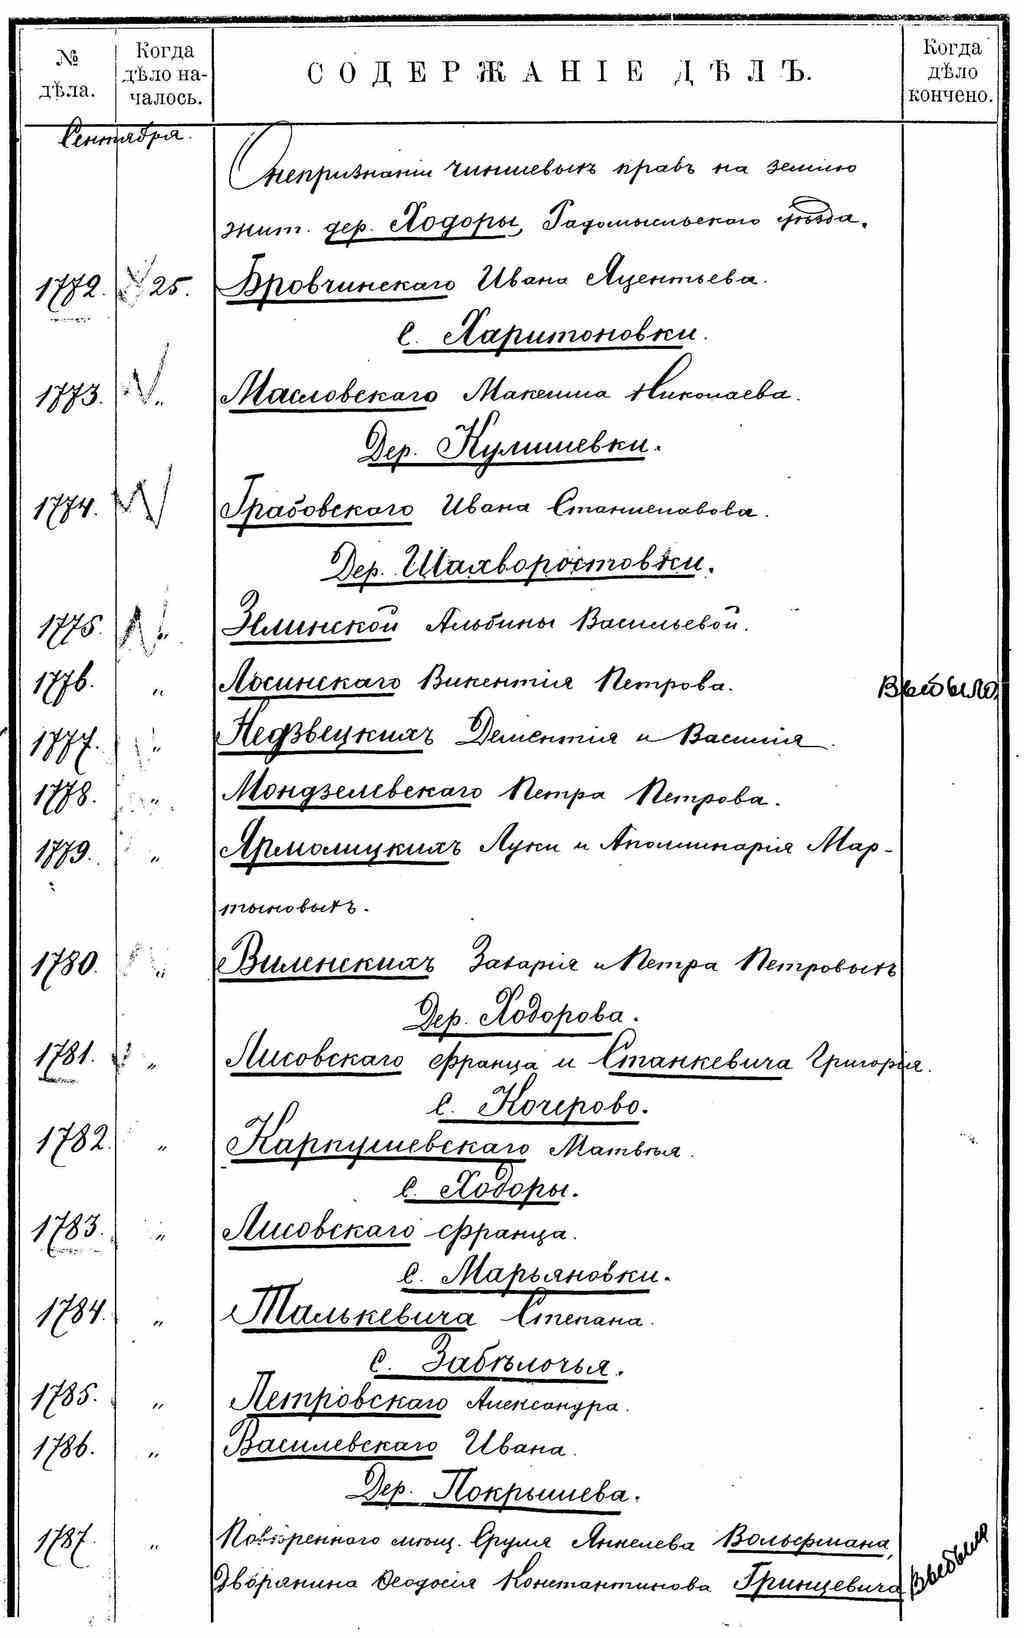 № дѣла.
Когда дѣло началось.
СОДЕРЖАНІЕ ДѢЛЪ.
Когда дѣло кончено.
Сентября.
О непризнаніи чиншевыхъ правъ на землю
жит. дер. Ходоры, Радомысльскаго уѣзда.
1772. 25. Бровчинскаго Ивана Яцентьева.
с. Харитоновки.
1773. „ Масловскаго Максима Николаева.
Дер. Кулишевки.
1774. Грабовскаго Ивана Станиславова.
Дер. Шахворостовки.
1775. „ Элинской Альбины Васильевой.
1776. „ Лосинскаго Викентія Петрова. Выбыло.
1777. „ Недзвецкихъ Дементія и Василія.
1778. „ Мондзелевскаго Петра Петрова.
1779. „ Ярмолицкихъ Луки и Аполинарія Мар-
тыновыхъ.
1780. „ Виленскихъ Захарія и Петра Петровыхъ
Дер. Ходорова.
1781. „ Лисовскаго Франца и Станкевича Григорія.
с. Кочерово.
1782. „ Карпушевскаго Матвѣя.
с. Ходоры.
1783. „ Лисовскаго Франца.
с. Марьяновки.
1784. „ Талькевича Степана.
с. Забѣлочья.
1785. „ Петровскаго Александра.
1786. „ Василевскаго Ивана.
Дер. Покрышева.
1787. „ Повѣреннаго мѣщ. Сруля Вольфмана,
Дворянина Ѳеодосія Константинова Гринцевича Выбыла